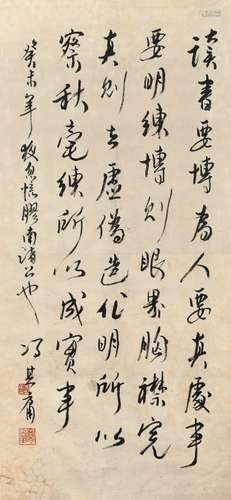 读書要博為人要真處事
要明練博则眼界胸襟宽
真则去虚偽造化明所以
察秋毫練所以成實事
癸未年膠南诸公也
冯其庸